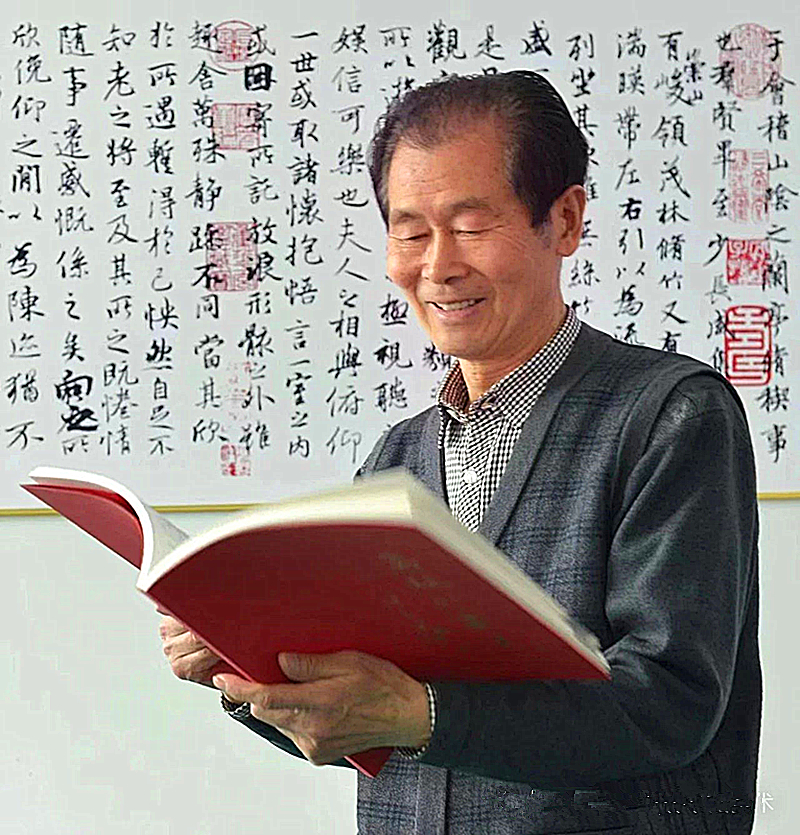 于會稽山陰之蘭亭脩禊事
也羣賢畢至少長咸
崇山
有峻領茂林脩竹又有
湍暎帶左右引以為流
列坐其次雖無絲竹
盛一
是日
觀 類
所以遊 極視聽
娛信可樂也夫人之相與俯仰
一世或取諸懷抱悟言一室之内
或因寄所託放浪形骸之外雖
趣舍萬殊静躁不同當其欣
於所遇蹔得於己怏然自足不
知老之將至及其所之既惓情
隨事遷感慨係之矣向之所
欣俛仰之閒以為陳迹猶不